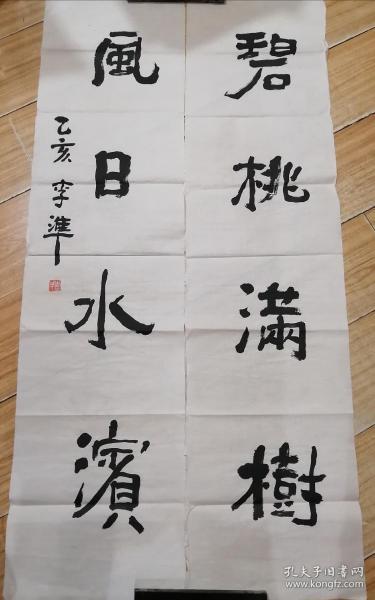 碧桃滿樹
風日水濱
乙亥 李準
孔夫子旧书网
www.kongfz.com